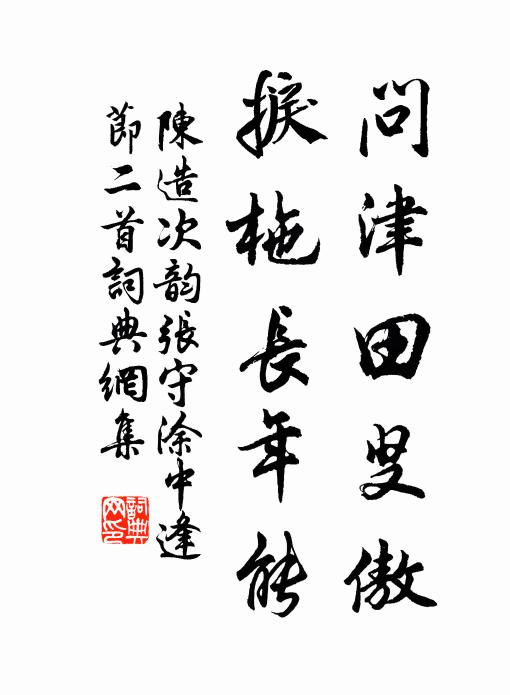 問津田叟傲
捩柂長年能
陳造次韵張守涂中逢
節二首詞典網集
詞典網印